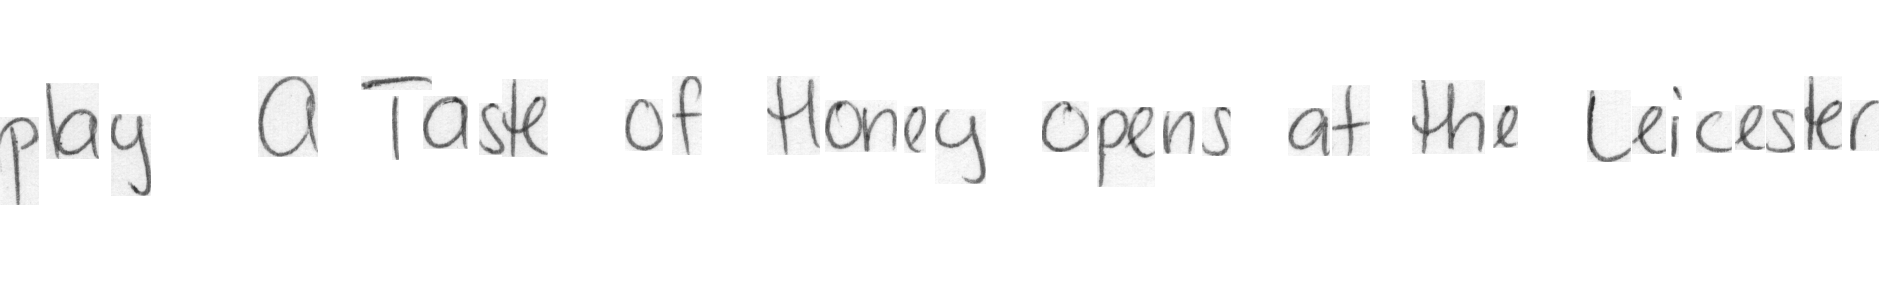 play A Taste of Honey opens at the Leicester